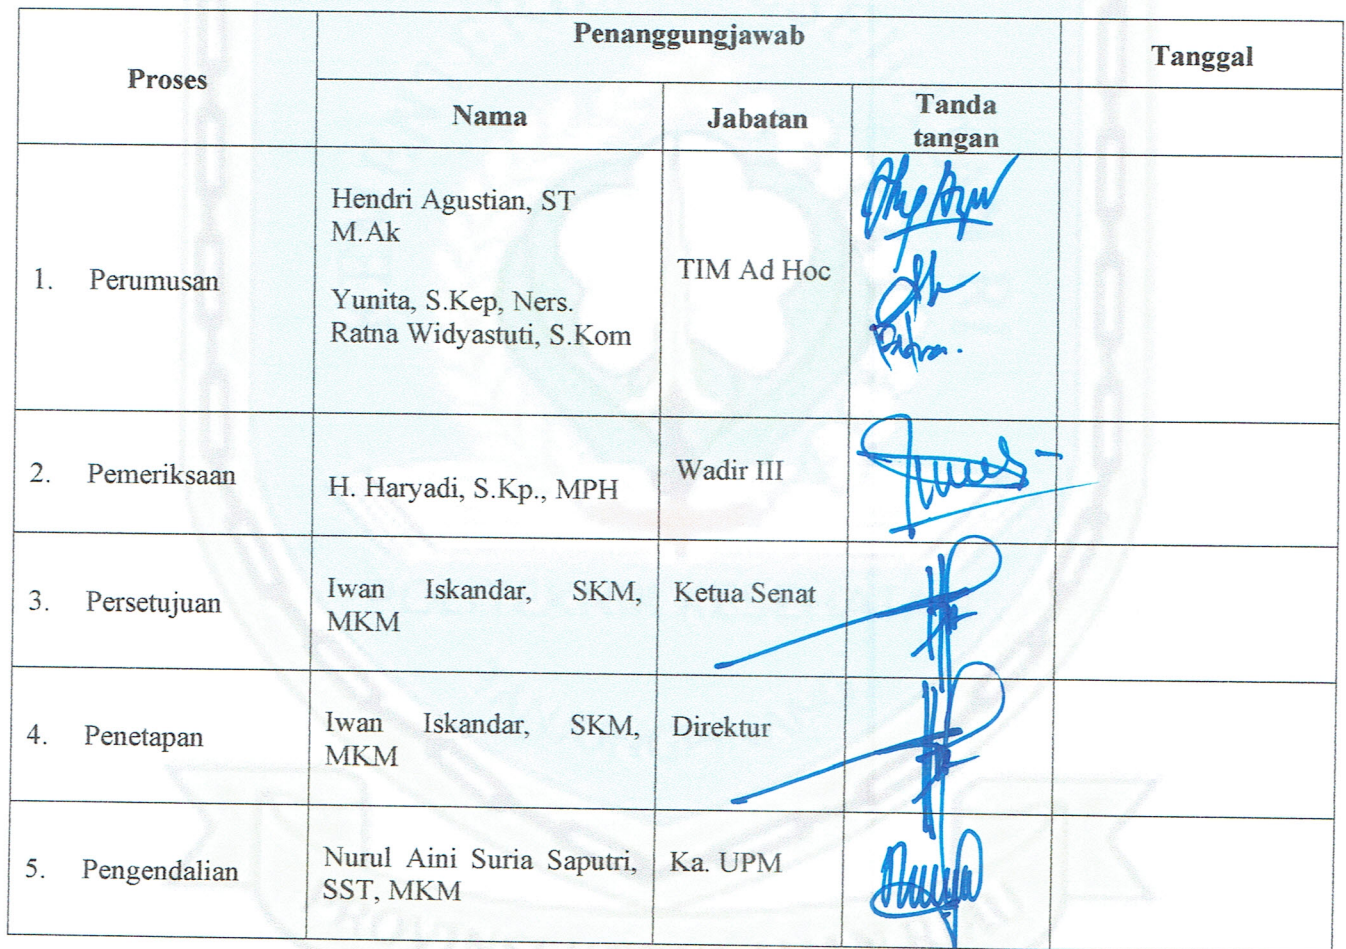 Proses
Penanggungjawab
Tanggal
Nama
Jabatan
Tanda
tangan
1. Perumusan
Hendri Agustian, ST
M.Ak
Yunita, S.Kep, Ners.
Ratna Widyastuti, S.Kom
TIM Ad Hoc
2. Pemeriksaan
H. Haryadi, S.Kp., MPH
Wadir III
3. Persetujuan
Iwan Iskandar, SKM,
MKM
Ketua Senat
4. Penetapan
Iwan Iskandar, SKM,
MKM
Direktur
5. Pengendalian
Nurul Aini Suria Saputri,
SST, MKM
Ka. UPM